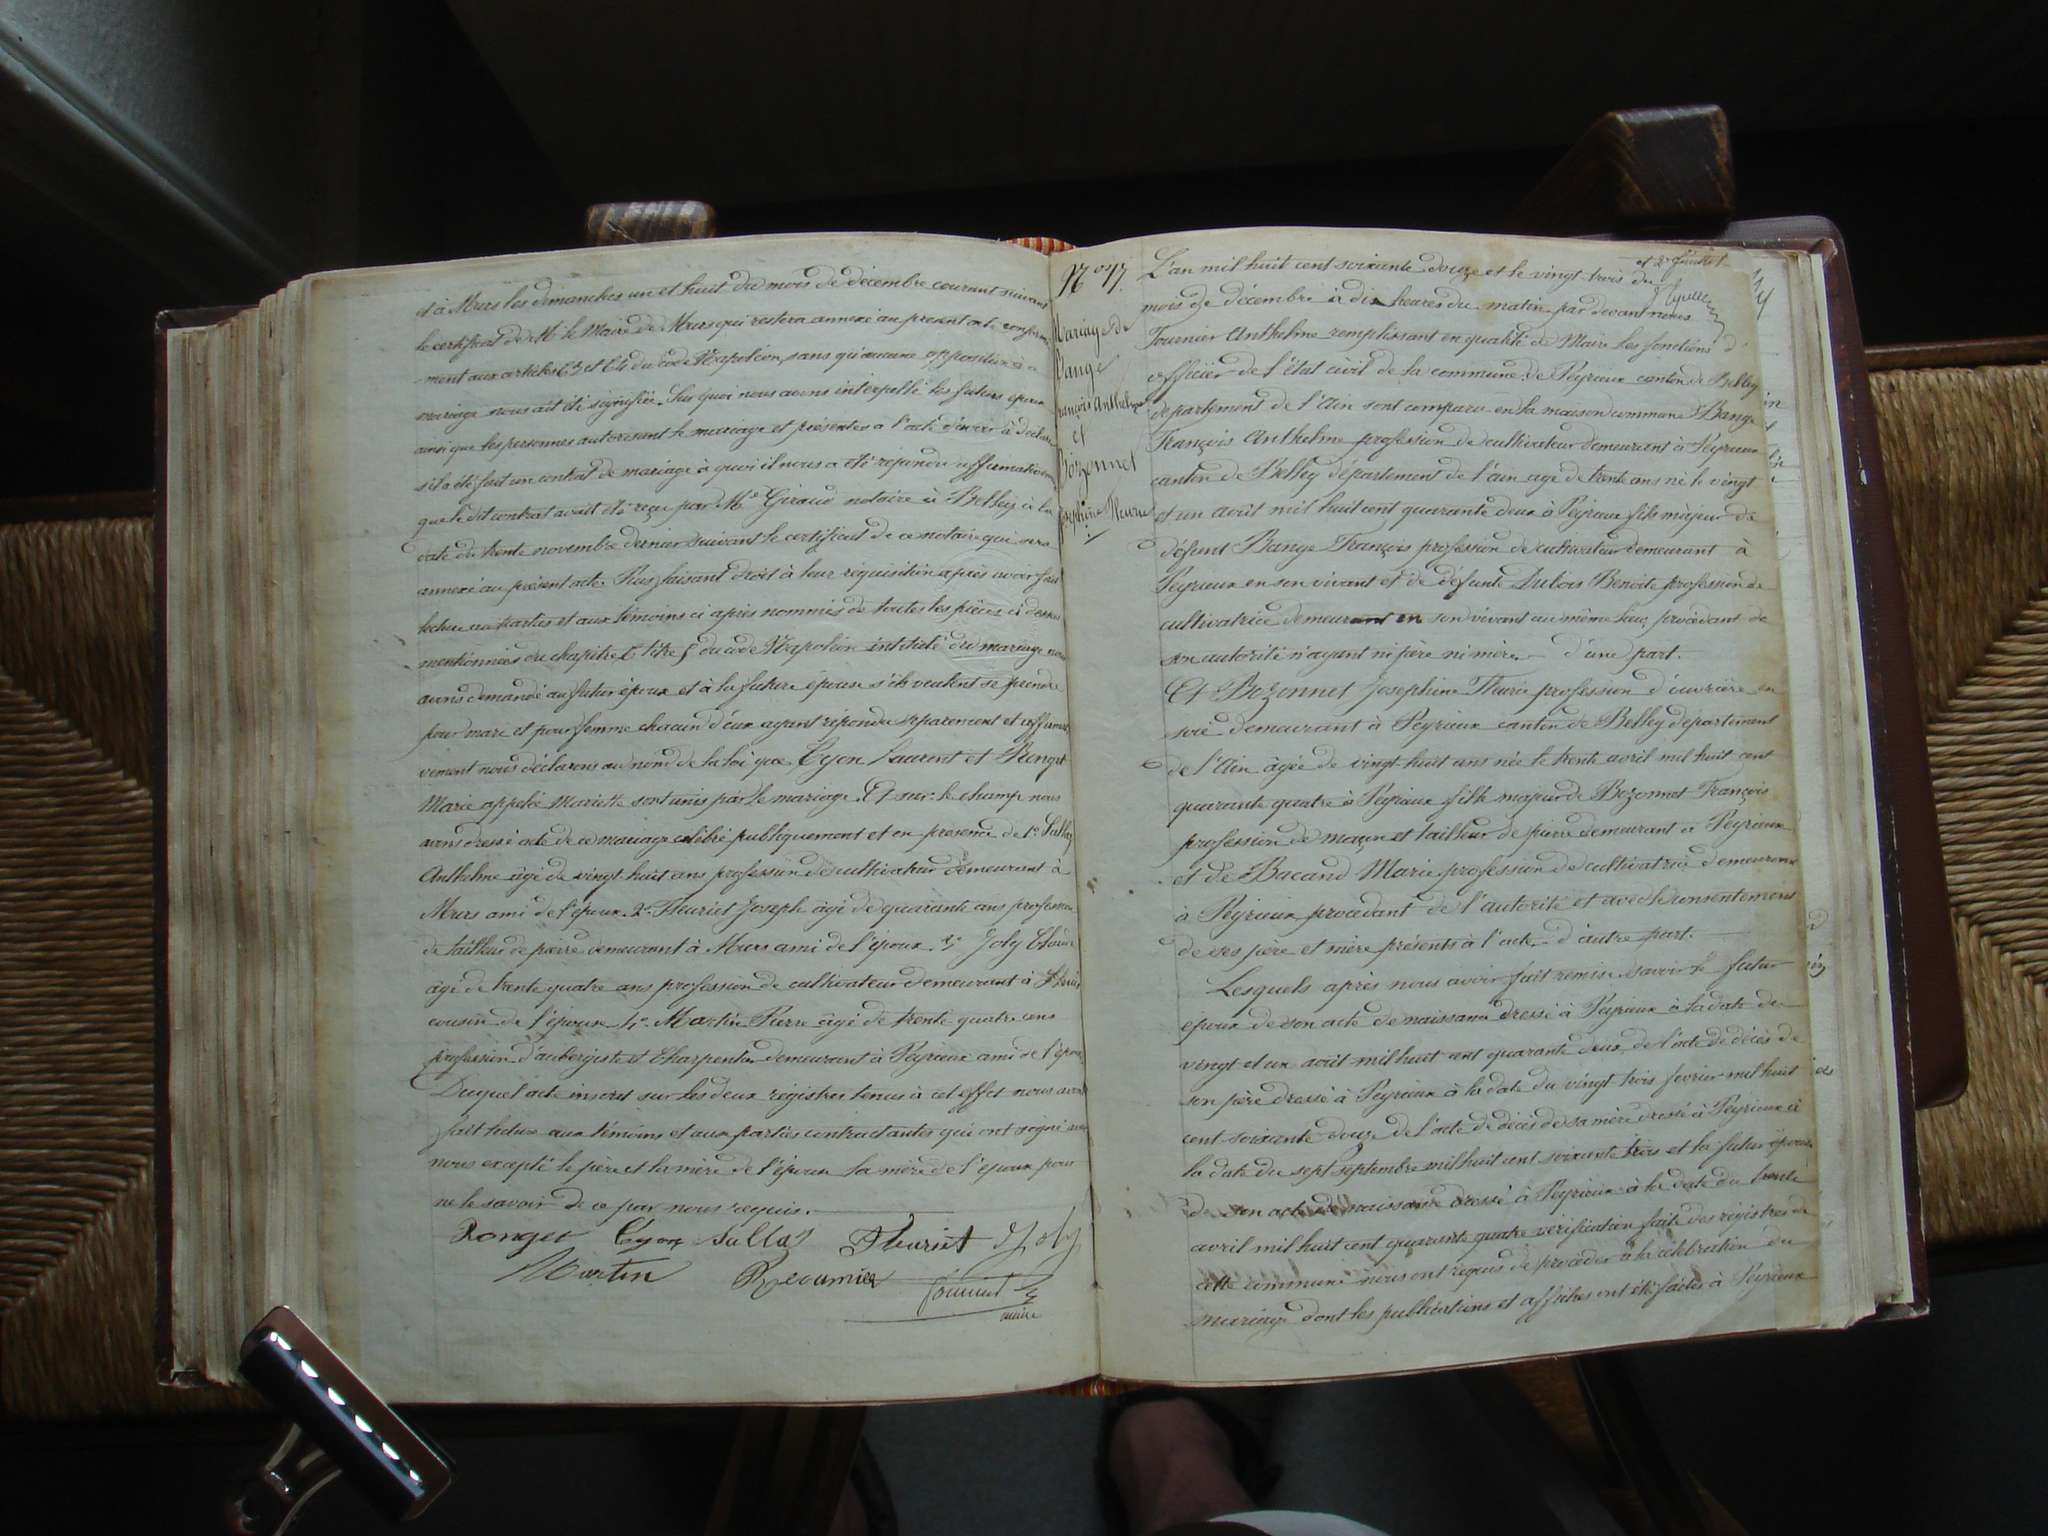 et à Murs les dimanches un et huit du mois de décembre courant suivant
le certificat de M. le Maire de Murs qui restera annexé au présent acte conformé
-ment aux articles 63 et 64 du code Napoléon, sans qu'aucune opposition à ce
mariage nous ait été signifiée. Sur quoi nous avons interpellé les futurs époux
ainsi que les personnes autorisant le mariage et présentes a l'acte d'avoir à déclarer
s'il a été fait un contrat de mariage à quoi il nous a été repondu affirmativement
que le dit contrat avait été reçu par Me Giraud notaire à Belley à la
date du trente novembre dernier suivant le certificat de ce notaire qui sera
annexé au présent acte. Puis faisant droit à leur réquisition après avoir fait
lecture aux parties et aux témoins ci après nommés de toutes les pièces ci dessus
mentionnées du chapitre 6 titre 5 du code Napoléon intitulé du mariage nous
avons demandé au futur époux et à la future épouse s'ils veulent se prendre
pour mari et pour femme chacun d'eux ayant répondu séparement et affirmati
vement nous déclarons au nom de la loi que Cyon Laurent et Ronget
Marie appelée Mariette sont unis par le mariage. Et sur le champ nous
avons dressé acte de ce mariage célébré publiquement et en presence de 1° Sallaz
Anthelme âgé de vingt huit ans profession de cultivateur demeurant à
Murs ami de l'époux. 2° Fleuriet Joseph âgé de quarante ans profession
de tailleur de pierre demeurant à Murs ami de l'époux. 3° Joly
âgé de trente quatre ans profession de cultivateur demeurant à
cousin de l'épouse 4° Martin Pierre âgé de trente quatre ans
profession d'aubergiste et Charpentier demeurant à Peyrieux ami de l'épouse
Duquel acte inscrit sur les deux régistres tenus à cet effet nous avons
fait lecture aux témoins et aux parties contractantes qui ont signé avec
nous excepté le père et la mère de l'épouse la mère de l'époux pour
ne le savoir de ce par nous requis.
Ronget Cyon Sallaz Fleuriet Joly
Martin Fournier
maire
et 2e feuillet
N° 7.
Mariage de
Bange
François Anthelme
et
Bozonnet
Joséphine Fleurie
L'an mil huit cent soixante douze et le vingt trois du
mois de décembre à dix heures du matin par devant nous
Fournier Anthelme remplissant en qualité de Maire les fonctions d'
officier de l'état civil de la commune de Peyrieux canton de Belley
département de l'Ain sont comparu en la maison commune Bange
François Anthelme profession de cultivateur demeurant à Peyrieux
canton de Belley département de l'ain agé de trente ans né le vingt
et un août mil huit cent quarante deux à Peyrieux fils majeur de
défunt Bange François profession de cultivateur demeurant à
Peyrieux en son vivant et de défunte Dubois Benoite profession de
cultivatrice demeurant en son vivant au même lieu, procédant de
son autorité n'ayant ni père ni mère. d'une part.
Et Bozonnet Josephine Fleurie profession d'ouvrière en
soie demeurant à Peyrieux canton de Belley département
de l'Ain âgée de vingt huit ans née le trente avril mil huit cent
quarante quatre à Peyrieux fille majeur de Bozonnet François
profession de maçon et tailleur de pierre demeurant à Peyrieux
et de Bacand Marie profession de cultivatrice demeurant
à Peyrieux procédant de l'autorité et avec le consentement
de ses père et mère présents à l'acte. d'autre part.
Lesquels après nous avoir fait remise savoir le futur
époux de son acte de naissance dressé à Peyrieux à la date du
vingt et un août mil huit cent quarante deux, de l'acte de décès de
son père dressé à Peyrieux à la date du vingt trois fevrier mil huit
cent soixante douze de l'acte de décès de sa mère dressé à Peyrieux à
la date du sept septembre mil huit cent soixante trois et la future épouse
de son acte de naissance dressé à Peyrieux à la date du trente
avril mil huit cent quarante quatre vérification faite des régistres de
cette commune nous ont requis de procéder à la célébration du
mariage dont les publications et affiches ont été faites à Peyrieux